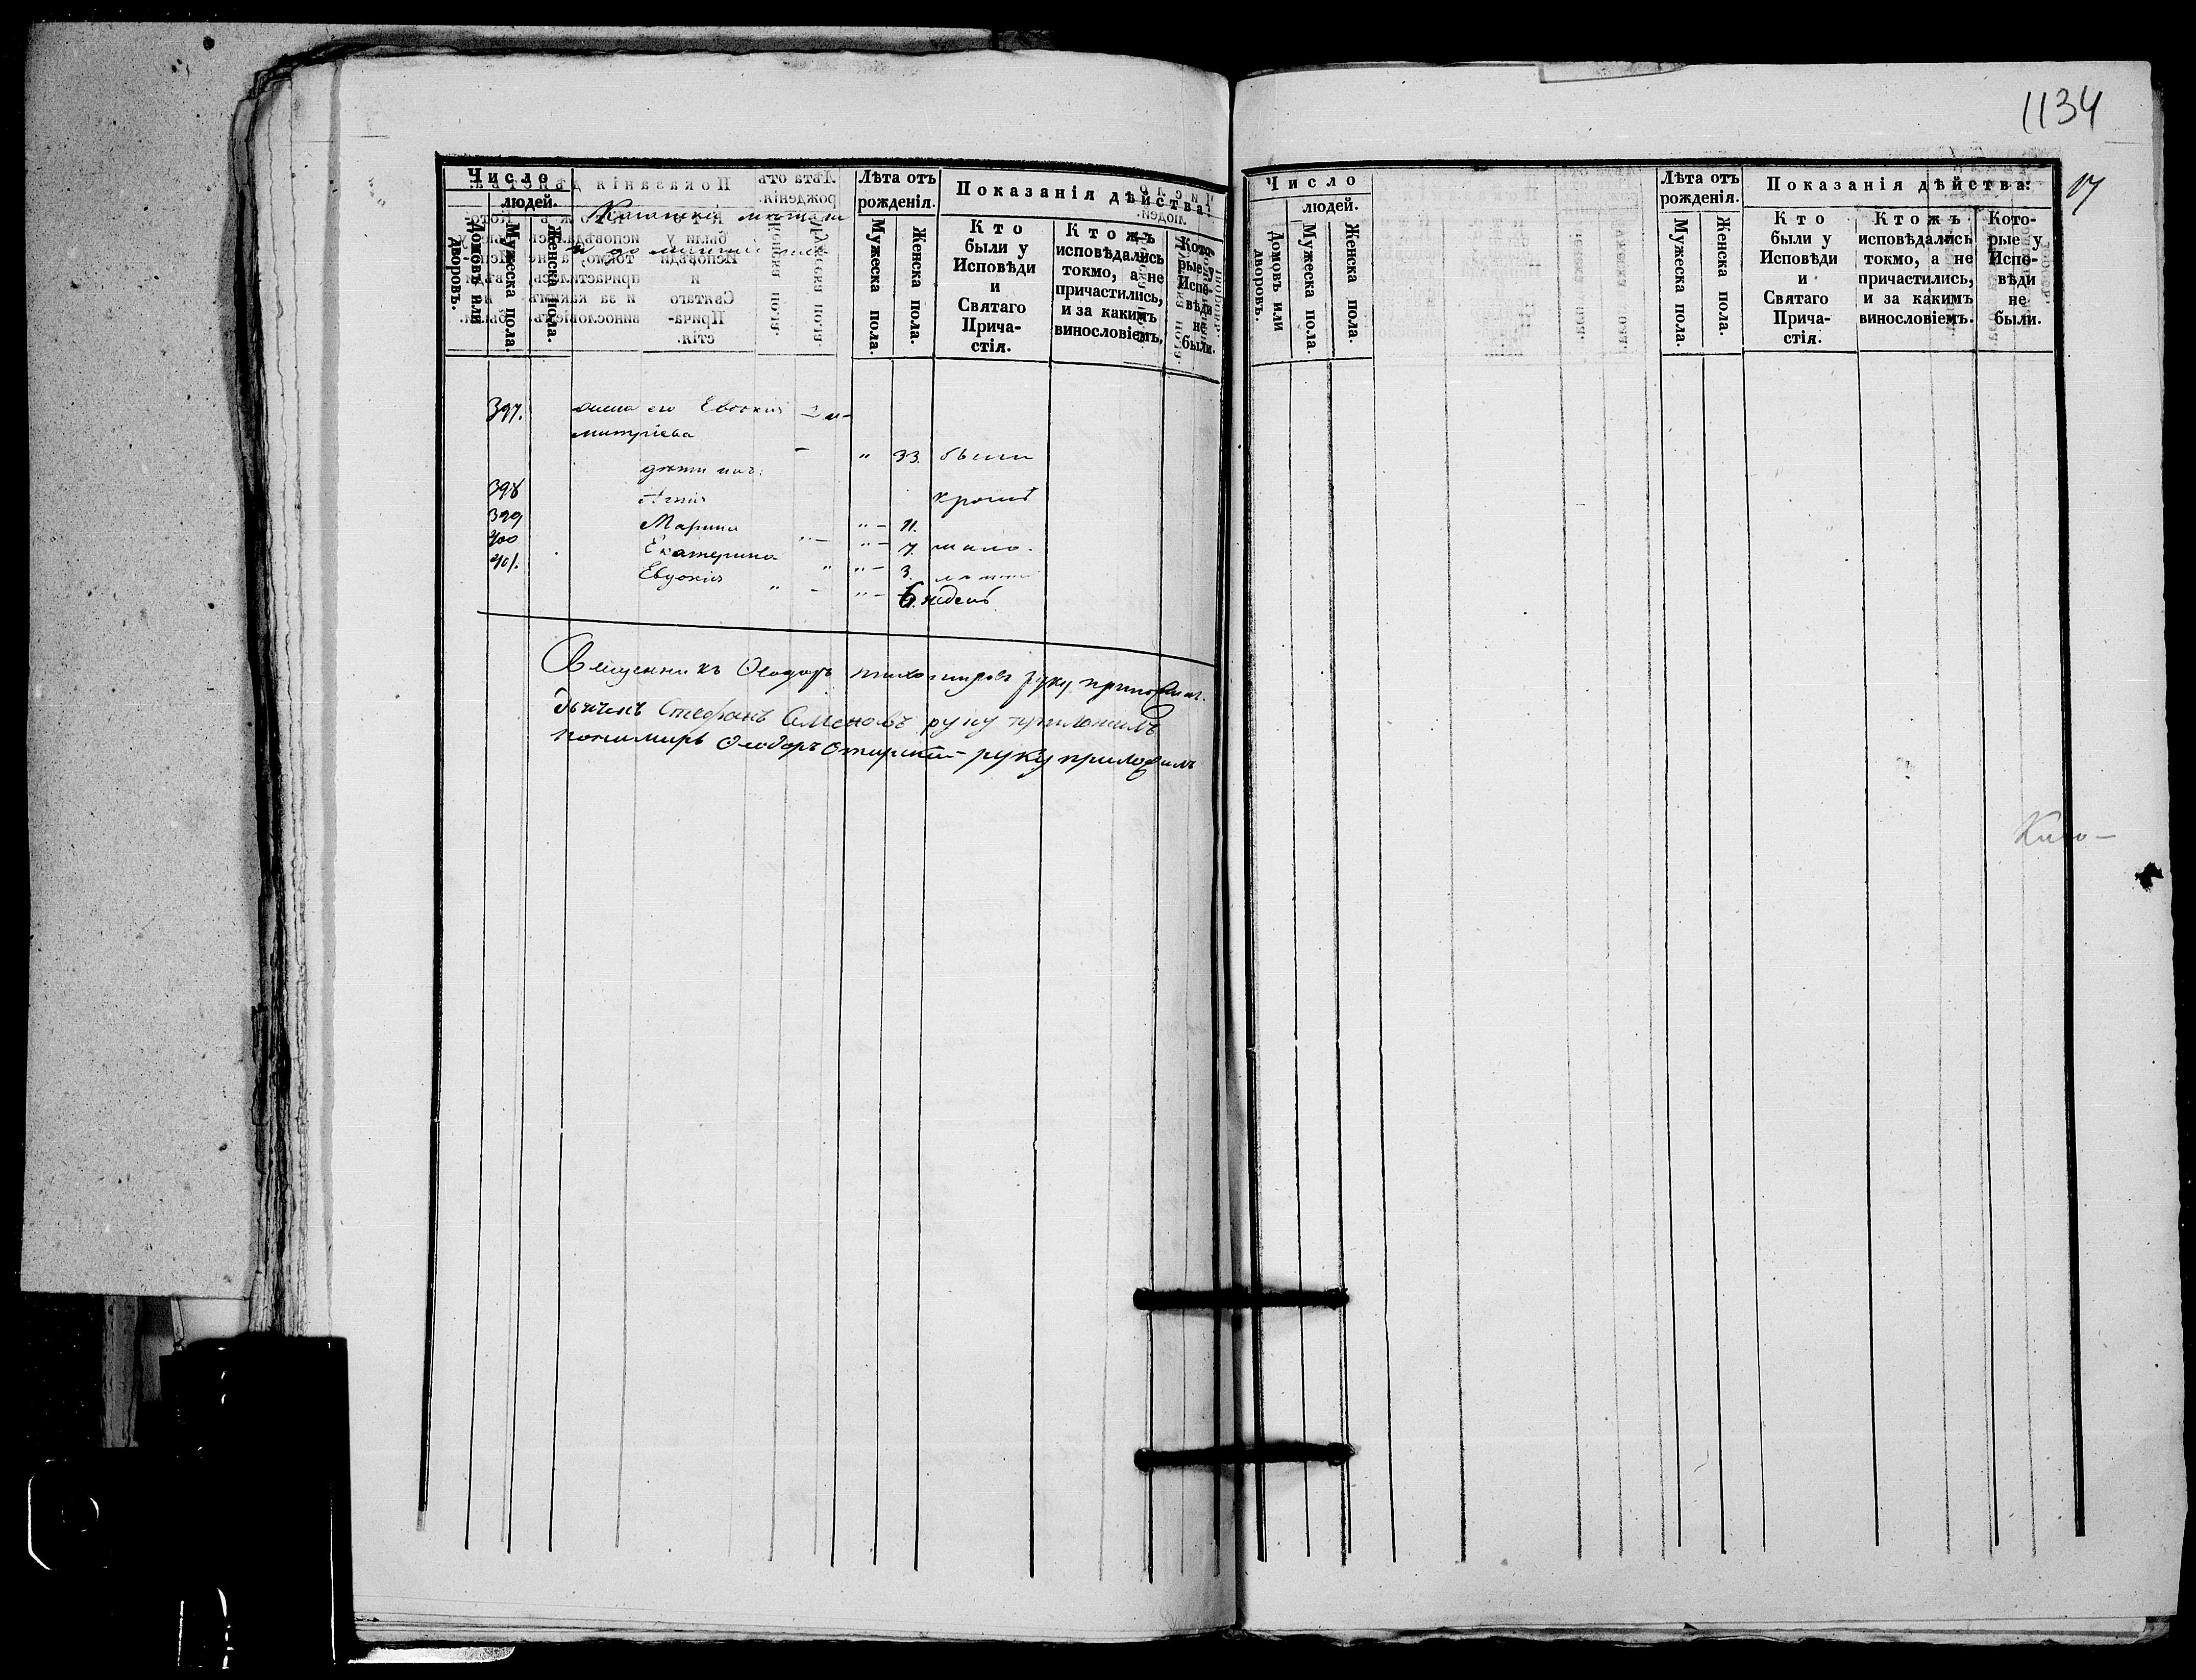 1134
17
Число
людей.
Домовъ или дворовъ.
Мужеска пола.
Женска пола.
Лѣта отъ рожденія.
Мужеска пола.
Женска пола.
Показанія дѣйства:
Кто были у Исповѣди и Святаго Прича-стія.
Ктожъ исповѣдались токмо, а не причастились, и за какимъ винословіемъ.
Кото-рые у Испо-вѣди не были.
397. жена его Евдокия
митріева
" 33. были
дѣти ихъ:
398 кромѣ
399 Марина " 11.
400 Екатерина " 7. мало-
401. Евдокія " 3.
" 6. недель
Священникъ Ѳеодоръ Тихомировъ руку приложилъ
дьячекъ Стефанъ Семеновъ руку приложилъ
пономарь Ѳеодоръ руку приложилъ
Число
людей.
Домовъ или дворовъ.
Мужеска пола.
Женска пола.
Лѣта отъ рожденія.
Мужеска пола.
Женска пола.
Показанія дѣйства:
Кто были у Исповѣди и Святаго Прича-стія.
Ктожъ исповѣдались токмо, а не причастились, и за какимъ винословіемъ.
Кото-рые у Испо-вѣди не были.